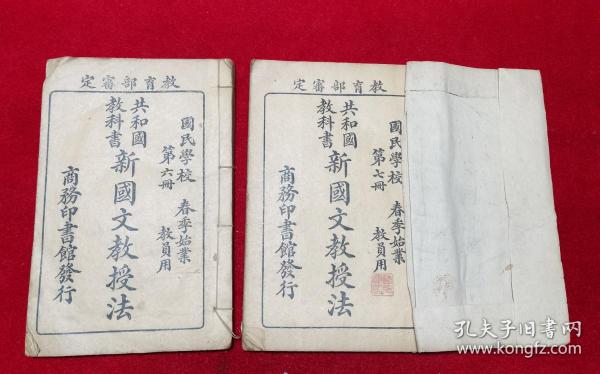 教育部審定
國民學校 春季始業
第六冊 教員用
共和國
教科書
新國文教授法
商務印書館發行
教育部審定
國民學校 春季始業
第七冊 教員用
共和國
教科書
新國文教授法
商務印書館發行
孔夫子旧书网
www.kongfz.com